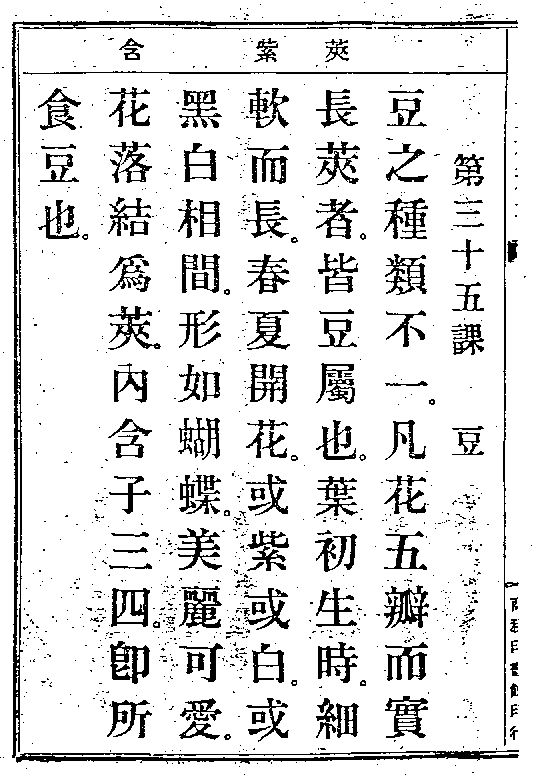 莢 紫 含
第三十五課 豆
豆之種類不一。凡花五瓣而實
長莢者。皆豆屬也。葉初生時。細
軟而長。春夏開花。或紫或白。或
黑白相間。形如蝴蝶。美麗可愛。
花落結爲莢。內含子三四。卽所
食豆也。
商務印書館印行